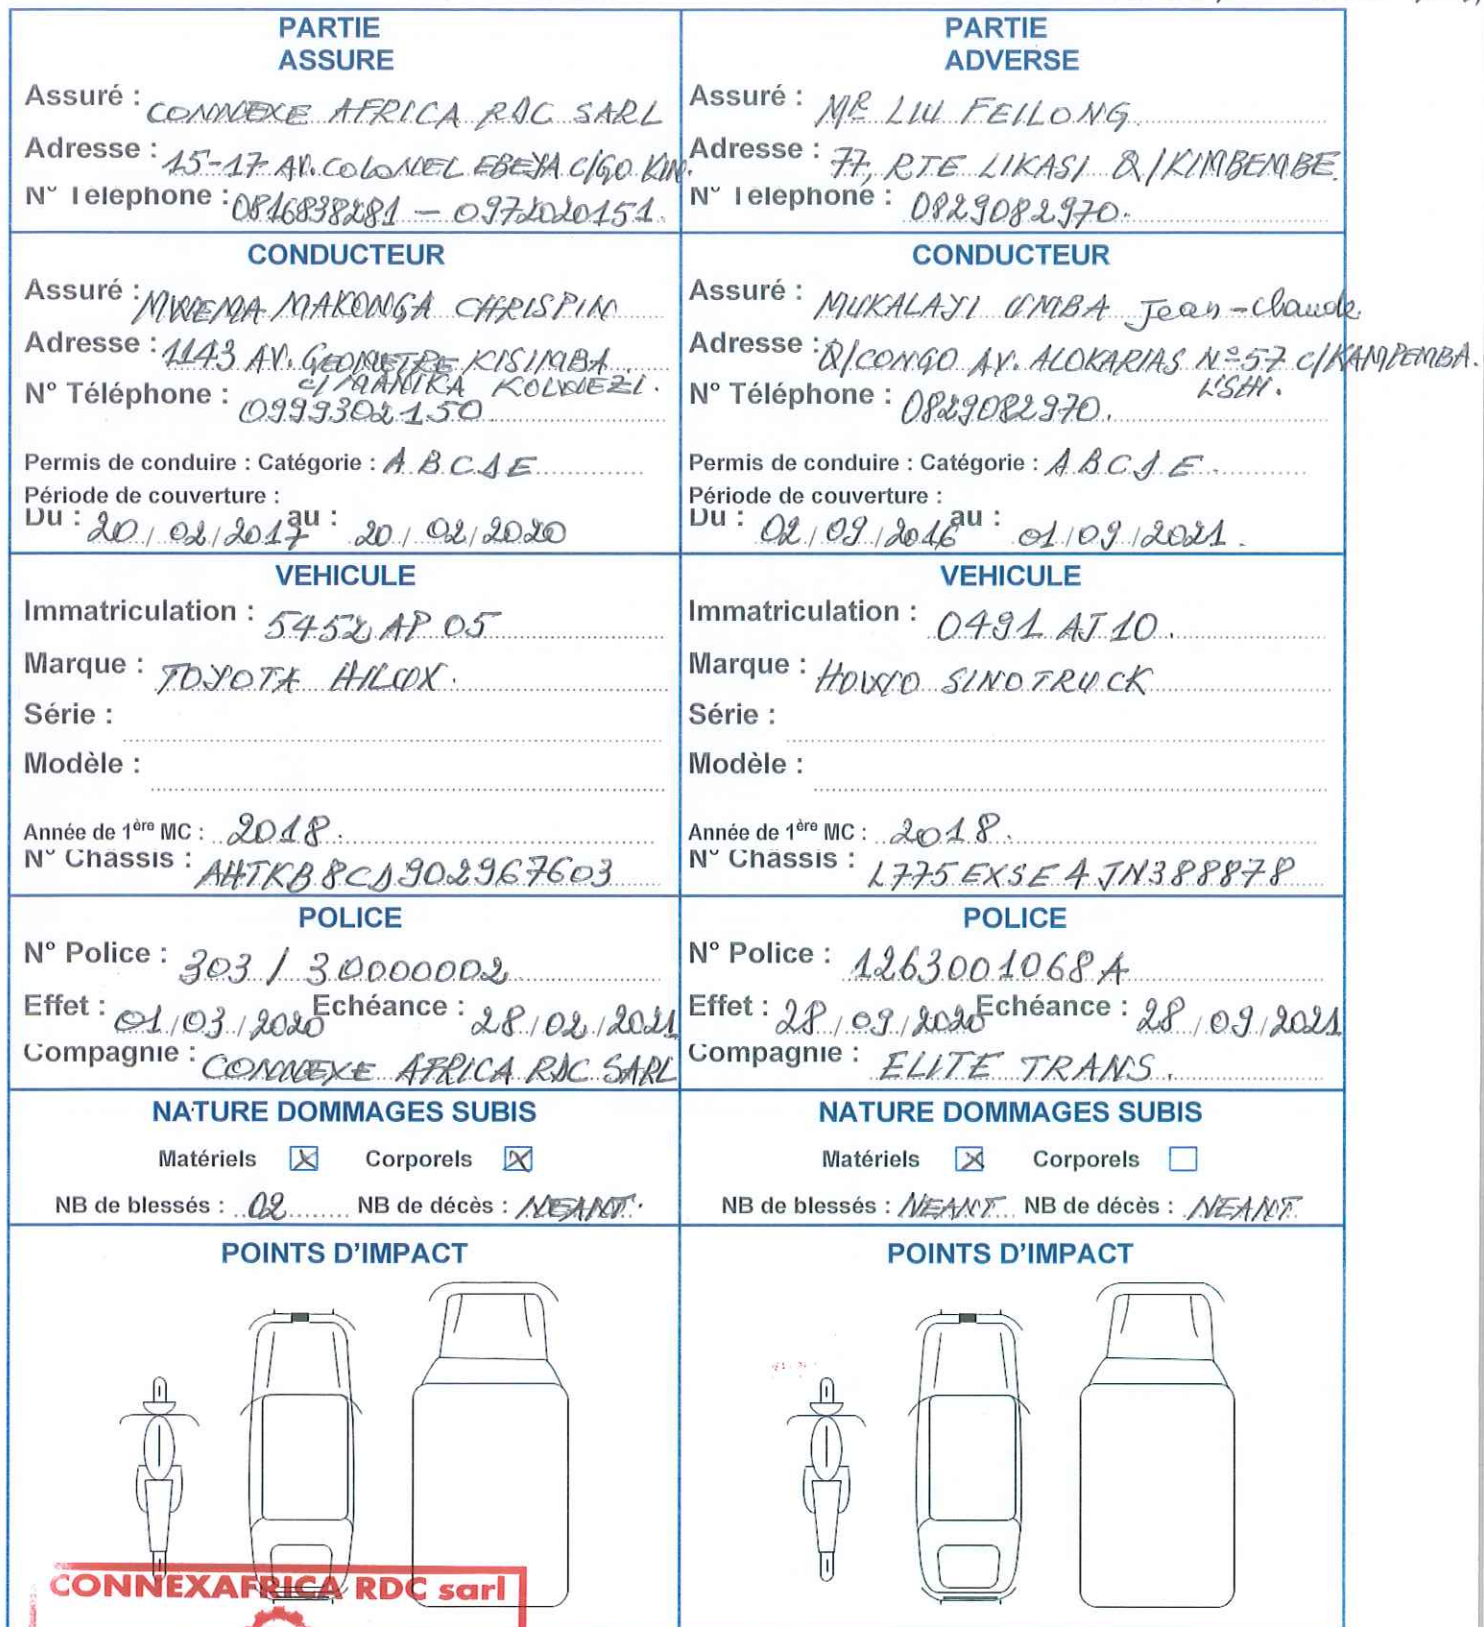 PARTIE
ASSURE
Assuré : CONNEXE AFRICA RDC SARL
Adresse : 15-17 AV. COLONEL EBEYA C/GO KIN.
N° Telephone : 0816838281 – 0972020151.
CONDUCTEUR
Assuré : MWEMA MAKONGA CHRISPIN
Adresse : 1143 AV. GEOMETRE KISIMBA
C/MANIKA KOLWEZI.
N° Téléphone : 0999302150
Permis de conduire : Catégorie : A B C D E
Période de couverture :
Du : 20/02/2017 au : 20/02/2020
VEHICULE
Immatriculation : 5452 AP 05
Marque : TOYOTA HILUX.
Série :
Modèle :
Année de 1ère MC : 2018.
N° Chassis : AHTKB8CD902967603
POLICE
N° Police : 303 / 30000002
Effet : 01/03/2020 Echéance : 28/02/2021
Compagnie : CONNEXE AFRICA RDC SARL
NATURE DOMMAGES SUBIS
Matériels X Corporels X
NB de blessés : 02 NB de décès : NEANT.
POINTS D'IMPACT
CONNEXAFRICA RDC sarl
PARTIE
ADVERSE
Assuré : MR LIU FEILONG
Adresse : 77, RTE LIKASI Q/KIMBEMBE.
N° Telephone : 0829082970.
CONDUCTEUR
Assuré : MUKALAYI UMBA Jean-Claude.
Adresse : Q/CONGO AV. ALOKARIAS N°57 C/KAMPEMBA.
L'SHI.
N° Téléphone : 0829082970.
Permis de conduire : Catégorie : A B C D E.
Période de couverture :
Du : 02/09/2016 au : 01/09/2021.
VEHICULE
Immatriculation : 0491 AJ 10.
Marque : HOWO SINOTRUCK
Série :
Modèle :
Année de 1ère MC : 2018.
N° Chassis : LZZ5EXSE4JN388878
POLICE
N° Police : 1263001068A
Effet : 28/09/2020 Echéance : 28/09/2021
Compagnie : ELITE TRANS.
NATURE DOMMAGES SUBIS
Matériels X Corporels
NB de blessés : NEANT NB de décès : NEANT
POINTS D'IMPACT